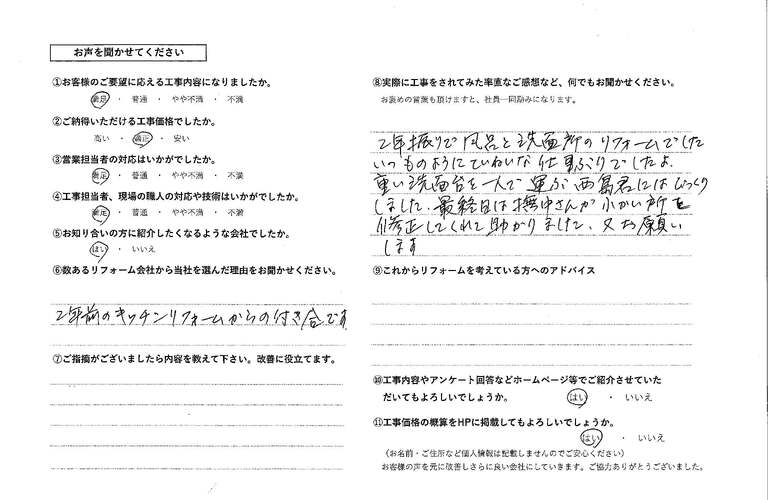 お声を聞かせてください
①お客様のご要望に応える工事内容になりましたか。
満足 ・ 普通 ・ やや不満 ・ 不満
②ご納得いただける工事価格でしたか。
高い ・ 適正 ・ 安い
③営業担当者の対応はいかがでしたか。
満足 ・ 普通 ・ やや不満 ・ 不満
④工事担当者、現場の職人の対応や技術はいかがでしたか。
満足 ・ 普通 ・ やや不満 ・ 不満
⑤お知り合いの方に紹介したくなるような会社でしたか。
はい ・ いいえ
⑥数あるリフォーム会社から当社を選んだ理由をお聞かせください。
2年前のキッチンリフォームからの付き合です
⑦ご指摘がございましたら内容を教えて下さい。改善に役立てます。
⑧実際に工事をされてみた率直なご感想など、何でもお聞かせください。
お褒めの言葉も頂けますと、社員一同励みになります。
2年振りで風呂と洗面所のリフォームでした
いつものようにていねいな仕事ぶりでしたよ
重い洗面台を一人で運ぶ西島君にはびっくり
しました、最終日は中さんが小かい所を
修正してくれて助かりました、又お願い
します
⑨これからリフォームを考えている方へのアドバイス
⑩工事内容やアンケート回答などホームページ等でご紹介させていた
だいてもよろしいでしょうか。 はい ・ いいえ
⑪工事価格の概算をHPに掲載してもよろしいでしょうか。
はい ・ いいえ
（お名前・ご住所など個人情報は記載しませんのでご安心ください）
お客様の声を元に改善しさらに良い会社にしていきます。ご協力ありがとうございました。